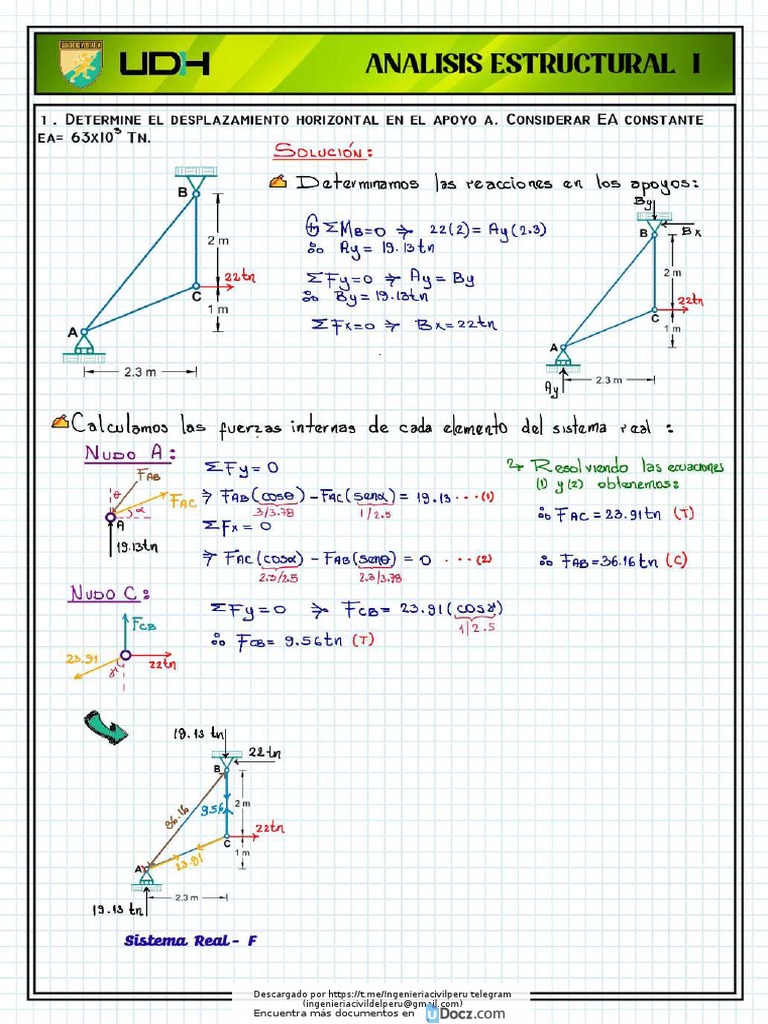 UDH
ANALISIS ESTRUCTURAL I
1. DETERMINE EL DESPLAZAMIENTO HORIZONTAL EN EL APOYO A. CONSIDERAR EA CONSTANTE
EA= 63X10³ TN.
SOLUCIÓN:
Determinamos las reacciones en los apoyos:
B
2 m
22tn
C
1 m
A
2.3 m
ΣMB=0 ⇒ 22(2) = Ay(2.3)
∴ Ay = 19.13tn
ΣFy=0 ⇒ Ay = By
∴ By = 19.13tn
ΣFx=0 ⇒ Bx=22tn
By
B
Bx
2 m
22tn
C
1 m
A
2.3 m
Ay
Calculamos las fuerzas internas de cada elemento del sistema real :
NUDO A:
FAB
θ
FAC
α
A
19.13tn
ΣFy = 0
⇒ FAB(cosθ) - FAC(senα) = 19.13 ...(1)
3/3.78 1/2.5
ΣFx = 0
⇒ FAC(cosα) - FAB(senθ) = 0 ...(2)
2.3/2.5 2.3/3.78
Resolviendo las ecuaciones
(1) y (2) obtenemos:
∴ FAC = 23.91tn (T)
∴ FAB=36.16tn (C)
NUDO C:
FCB
23.91
γ
22tn
ΣFy = 0 ⇒ FCB = 23.91(cosγ)
1/2.5
∴ FCB= 9.56tn (T)
19.13 tn
22 tn
B
36.16
9.56
2 m
22tn
C
1 m
23.91
A
2.3 m
19.13 tn
Sistema Real - F
Descargado por https://t.me/Ingenieriacivilperu telegram
(ingenieriacivildelperu@gmail.com)
Encuentra más documentos en uDocz.com